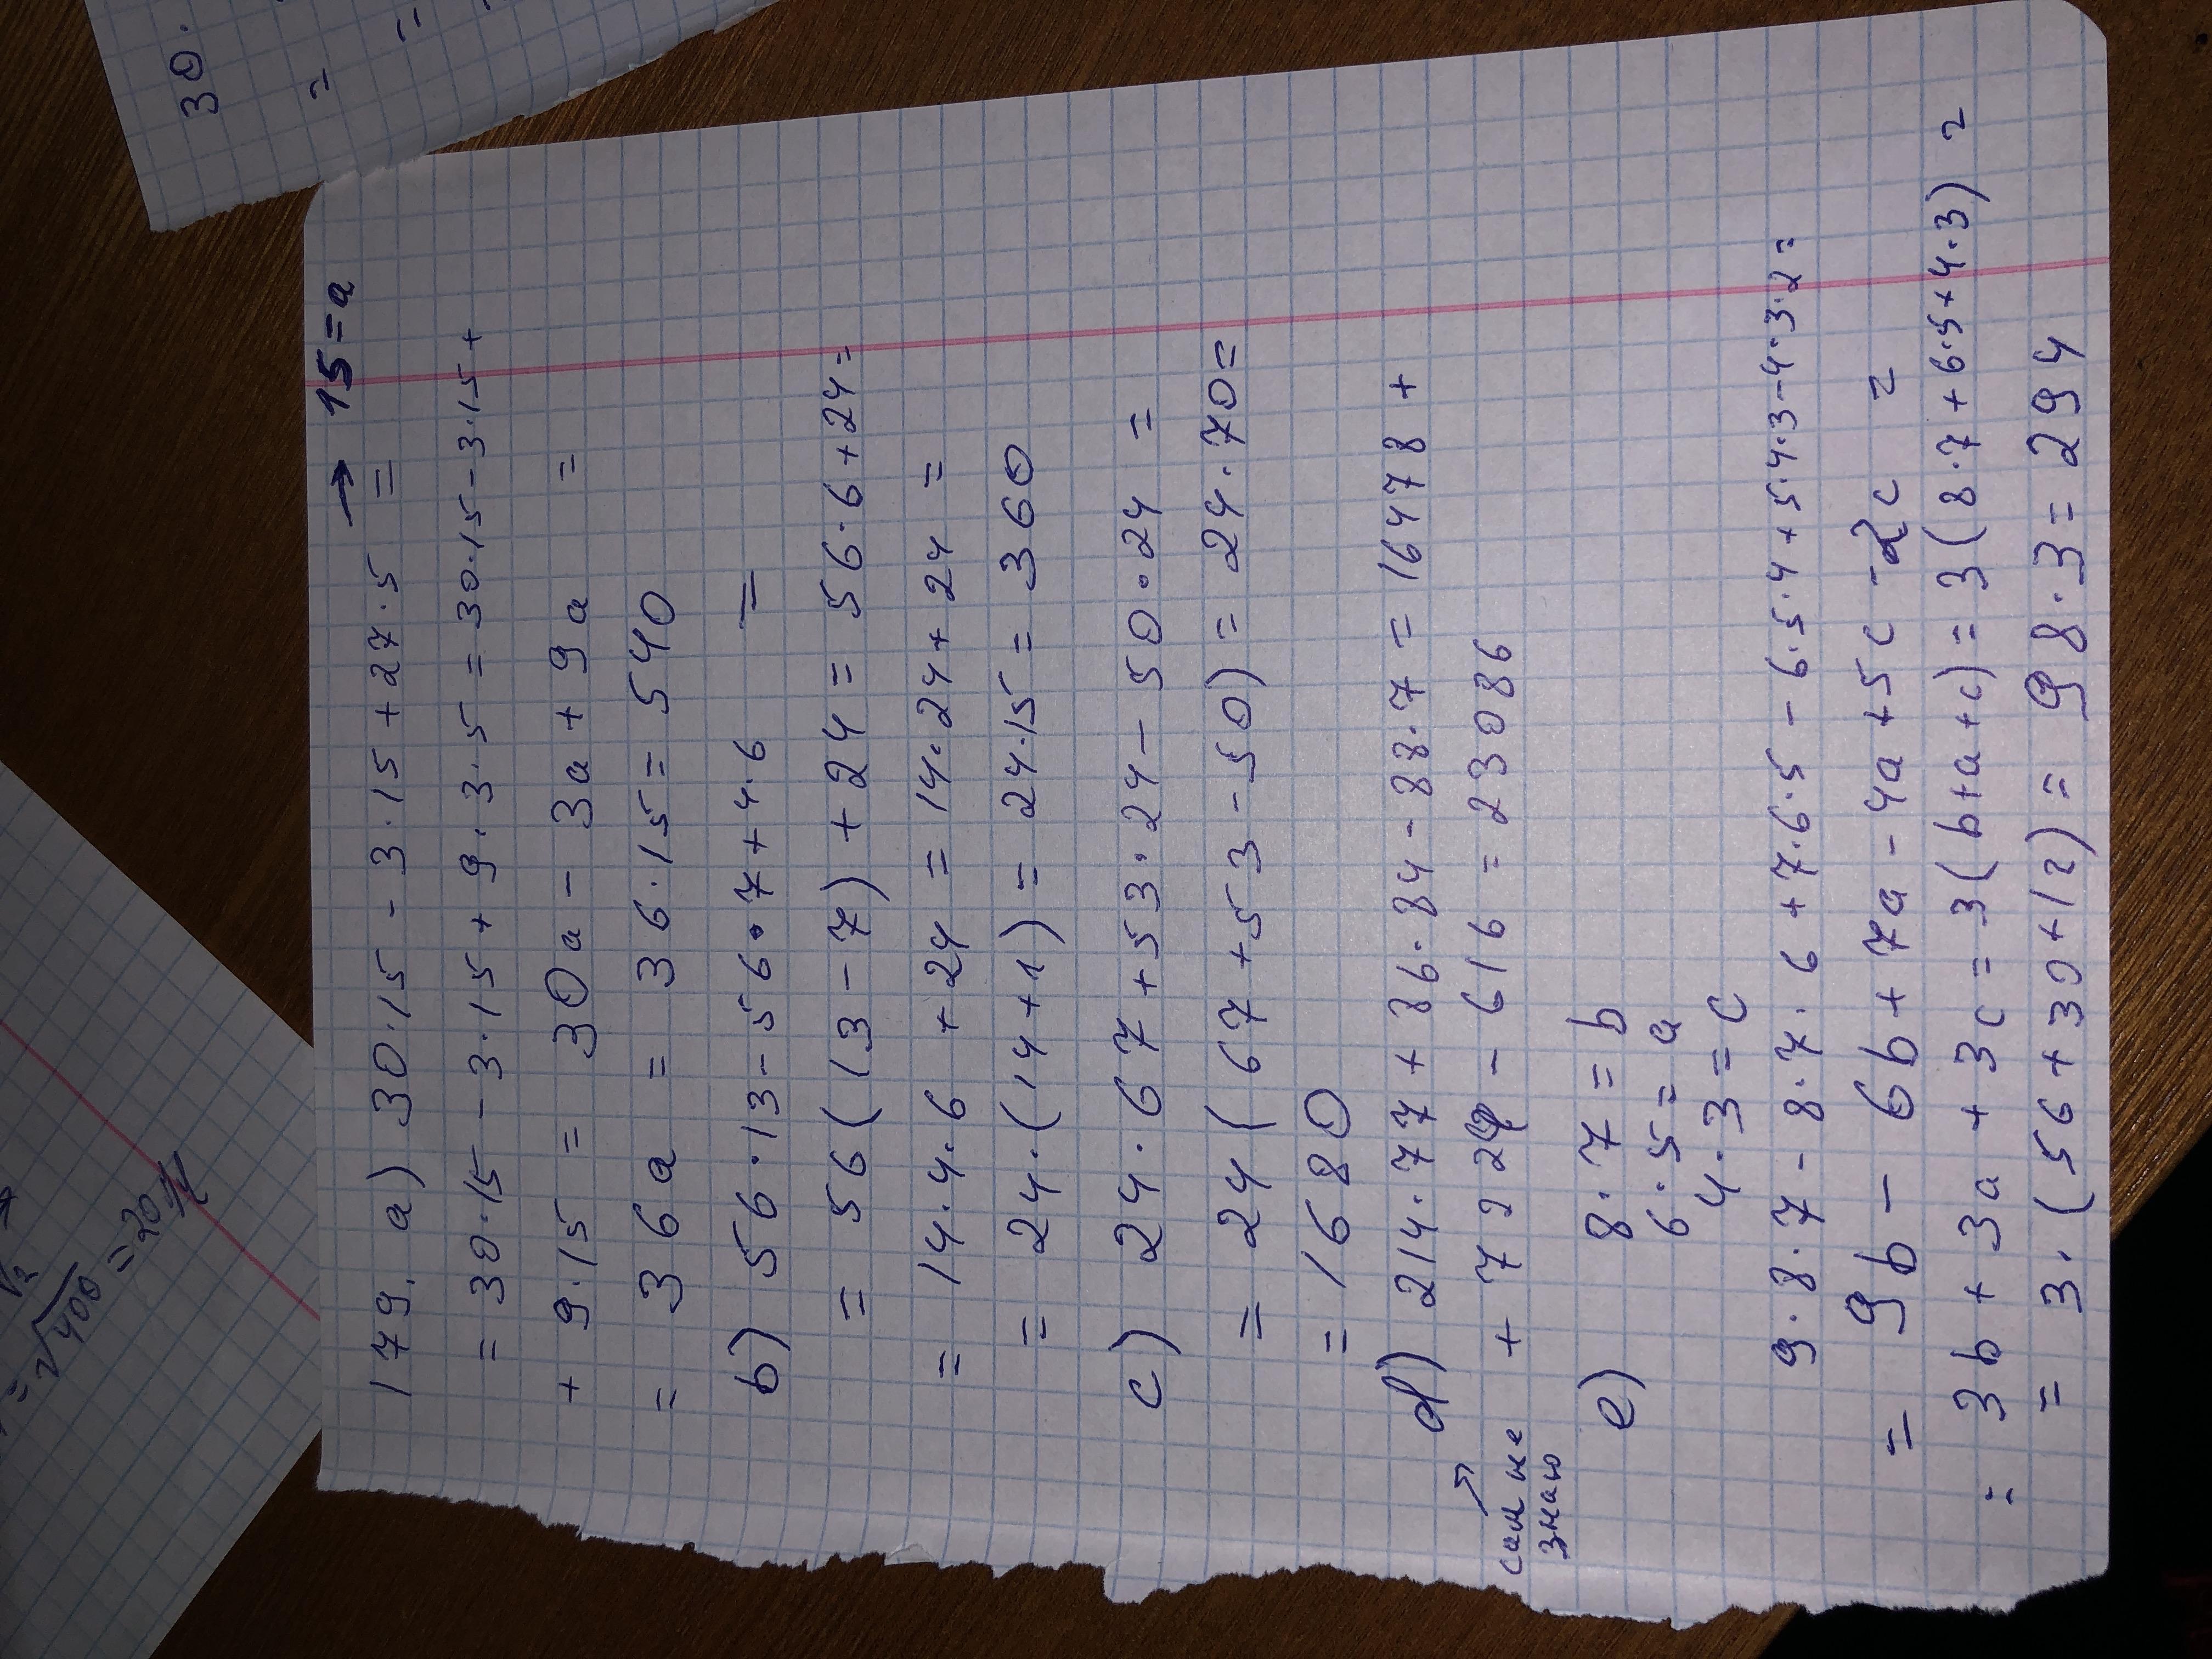 → 15=a
179. a) 30·15 - 3·15 + 27·5 =
= 30·15 - 3·15 + 9·3·5 = 30·15 - 3·15 +
+ 9·15 = 30a - 3a + 9a =
= 36a = 36·15 = 540
b) 56·13 - 56·7 + 4·6 =
= 56(13 - 7) + 24 = 56·6 + 24 =
= 14·4·6 + 24 = 14·24 + 24 =
= 24·(14+1) = 24·15 = 360
c) 24·67 + 53·24 - 50·24 =
= 24(67 + 53 - 50) = 24·70 =
= 1680
d) 214·77 + 86·84 - 88·7 = 16478 +
+ 7224 - 616 = 23086
сам не
знаю
e) 8·7 = b
6·5 = a
4·3 = c
9·8·7 - 8·7·6 + 7·6·5 - 6·5·4 + 5·4·3 - 4·3·2 =
= 9b - 6b + 7a - 4a + 5c - 2c =
= 3b + 3a + 3c = 3(b+a+c) = 3(8·7 + 6·5 + 4·3) =
= 3·(56 + 30 + 12) = 98·3 = 294
30.
=
=
= √400 = 20